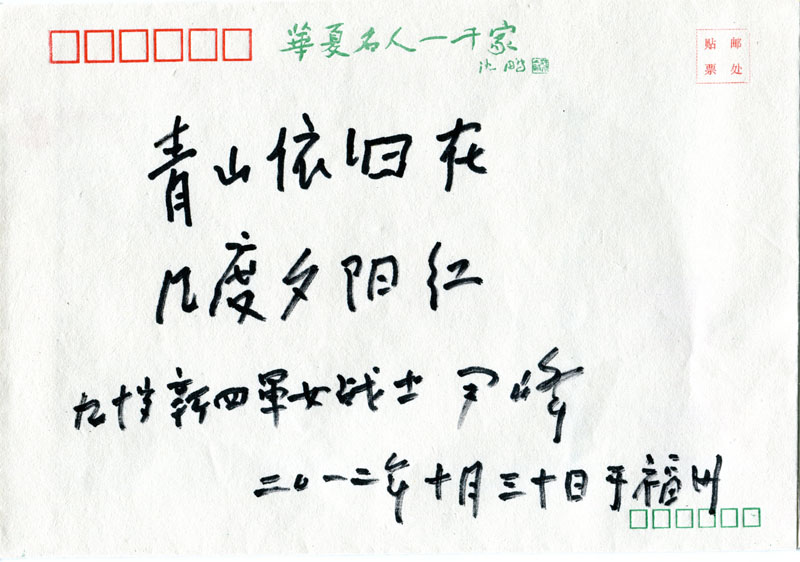 華夏名人一千家
沈鹏
贴邮
票处
青山依旧在
几度夕阳红
九十岁新四軍女战士 尹峰
二〇一二年十月三十日于福州